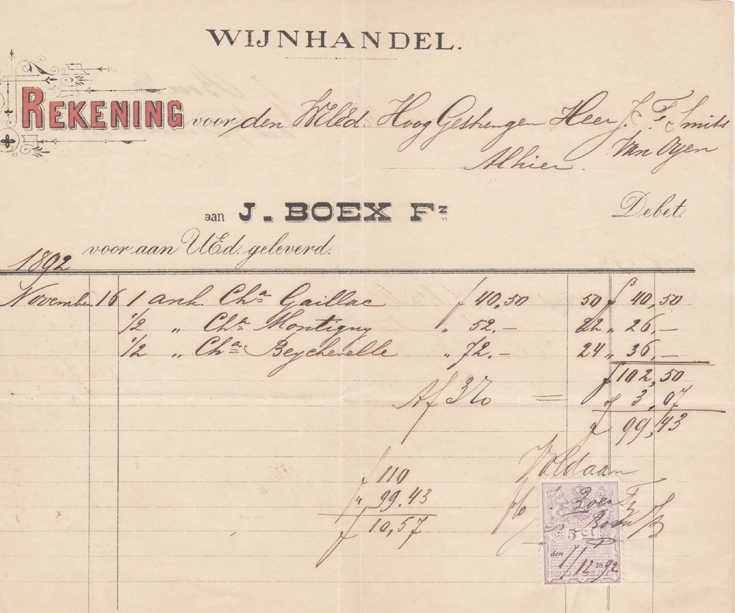 WIJNHANDEL.
REKENING voor den WelEd. Hoog Gestrengen Heer J. F. Smits
Van Oyen
Alhier.
aan J. BOEX Fz Debet.
voor aan UEd. geleverd.
1892
November 16 1 ank. Cha Gaillac f 40,50 50 f 40,50
1/2 " Cha Montigny " 52.- 22 " 26,-
1/2 " Cha Beychevelle " 72,- 24 " 36,-
f 102,50
Af 3% = " 3,07
f 99,43
Voldaan
f 110
" 99.43
f 10,57
J. Boex Fz
5 ct
den 1/12 1892